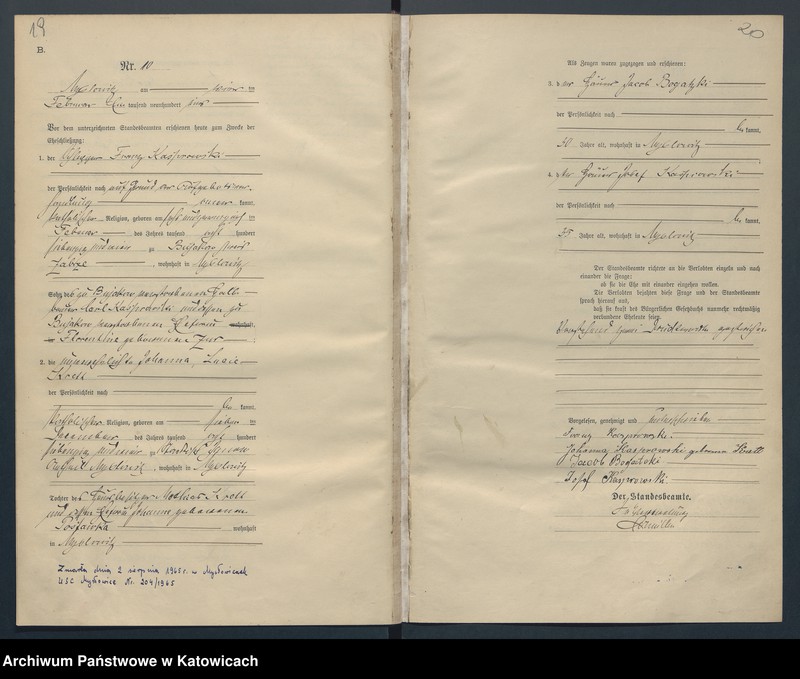 19
B.
Nr. 10
Myslowitz am
Februar Ein tausend neunhundert vier
Vor dem unterzeichneten Standesbeamten erschienen heute zum Zwecke der
Eheschließung:
1. der Franz Kasprowski
der Persönlichkeit nach auf Grund der Aufgebotsver-
handlung kannt,
katholischer Religion, geboren am
Februar des Jahres tausend acht hundert
siebenzig und neun zu Bujakow Kreis
Zabrze, wohnhaft in Myslowitz
Sohn des zu Bujakow verstorbenen
Karl Kasprowski und dessen zu
Bujakow verstorbenen Ehefrau wohnhaft
in Florentine geborenen Zur
2. die unverehelichte Johanna, Lucie
Krett
der Persönlichkeit nach
be kannt,
katholischer Religion, geboren am
Dezember des Jahres tausend acht hundert
siebenzig und neun zu
Myslowitz, wohnhaft in Myslowitz
Tochter des Krett
und dessen Ehefrau Johanna geborenen
wohnhaft
in Myslowitz
Zmarła dnia 2 sierpnia 1965 r. w Mysłowicach
USC Mysłowice Nr. 204/1965
20
Als Zeugen waren zugezogen und erschienen:
3. der Häuer Jacob Bogatzki
der Persönlichkeit nach
be kannt,
Jahre alt, wohnhaft in Myslowitz
4. der Häuer Josef Kasprowski
der Persönlichkeit nach
be kannt,
Jahre alt, wohnhaft in Myslowitz
Der Standesbeamte richtete an die Verlobten einzeln und nach
einander die Frage:
ob sie die Ehe mit einander eingehen wollen.
Die Verlobten bejahten diese Frage und der Standesbeamte
sprach hierauf aus,
daß sie kraft des Bürgerlichen Gesetzbuchs nunmehr rechtmäßig
verbundene Eheleute seien.
Vorstehend zwei Druckworte gestrichen
Vorgelesen, genehmigt und unterschrieben
Franz Kasprowski.
Johanna Kasprowski geborene Krett
Jacob Bogatzki
Josef Kasprowski
Der Standesbeamte.
In Vertretung
Archiwum Państwowe w Katowicach